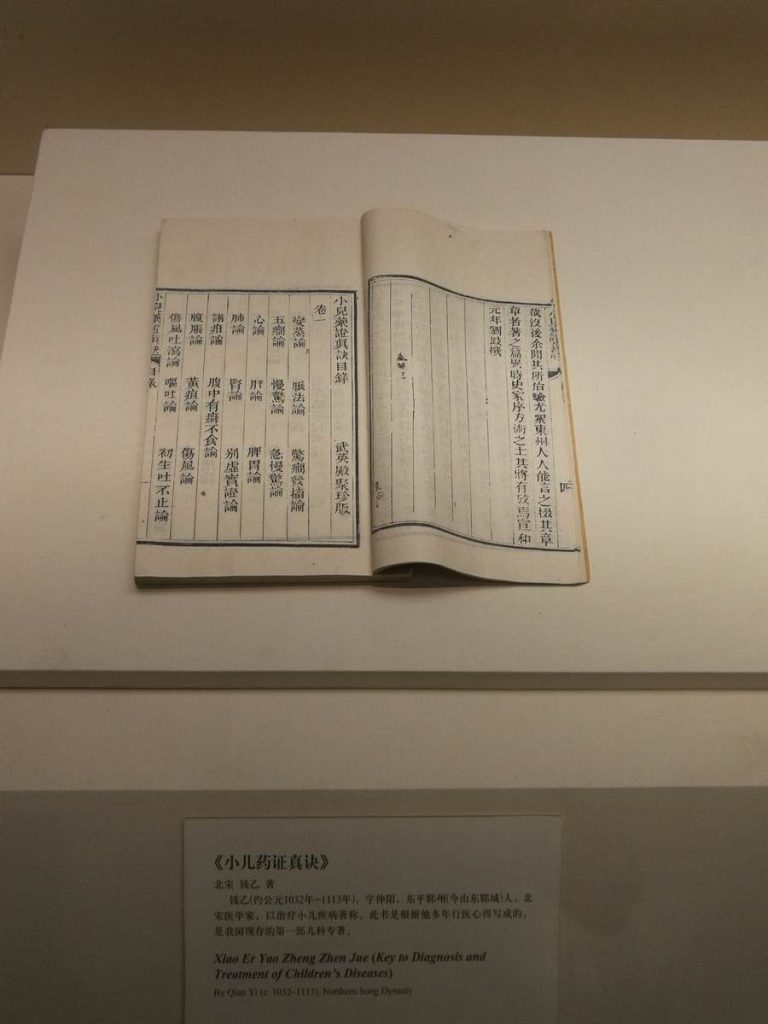 四
哉沒後余聞其所治驗尤衆東州人人能言之掇其章
章者著之篇異時史家序方術之士其將有攷焉宣和
元年劉跂撰
小兒藥證眞訣目錄 武英殿聚珍版
卷一
變蒸論 脈法論 驚癇發搐論
五癇論 慢驚論 急慢驚論
心論 肝論 脾胃論
肺論 腎論 别虛實證論
諸疳論 腹中有癖不食論
腹脹論 黃疸論 傷風論
傷風吐瀉論 嘔吐論 初生吐不止論
小兒藥證眞訣 目錄
《小儿药证真诀》
北宋 钱乙 著
钱乙(约公元1032年-1113年)，字仲阳，东平郓州(今山东郓城)人，北
宋医学家，以治疗小儿疾病著称。此书是根据他多年行医心得写成的，
是我国现存的第一部儿科专著。
Xiao Er Yao Zheng Zhen Jue (Key to Diagnosis and
Treatment of Children's Diseases)
By Qian Yi (c. 1032–1113), Northern Song Dynasty